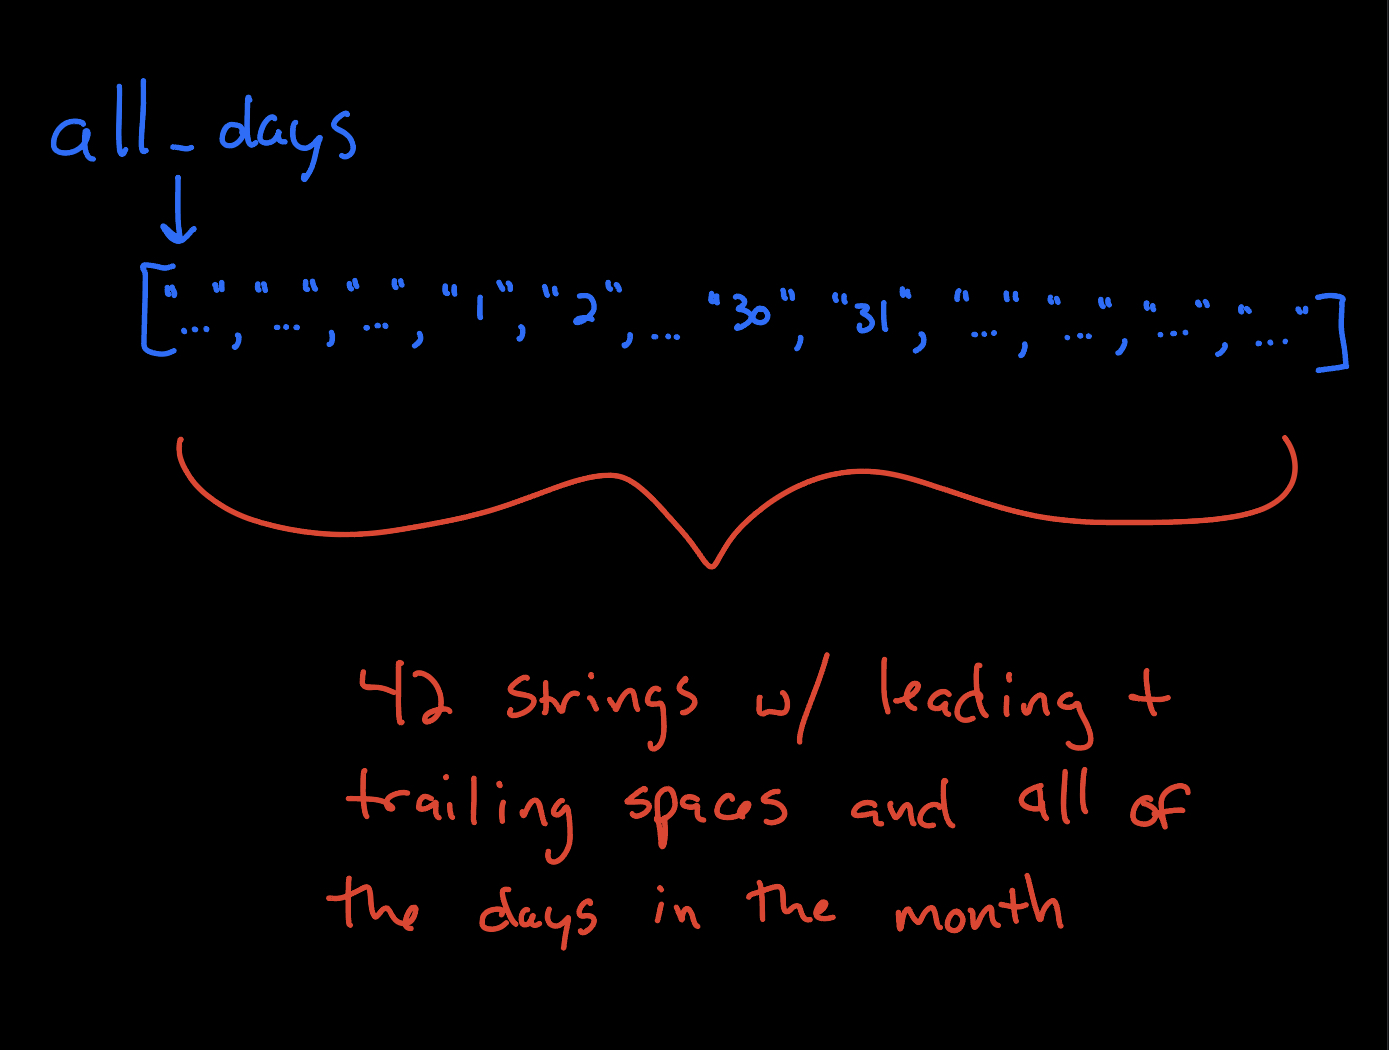 all_days
["...", "...", "...", "1", "2", ... "30", "31", "...", "...", "...", "..."]
42 strings w/ leading +
trailing spaces and all of
the days in the month